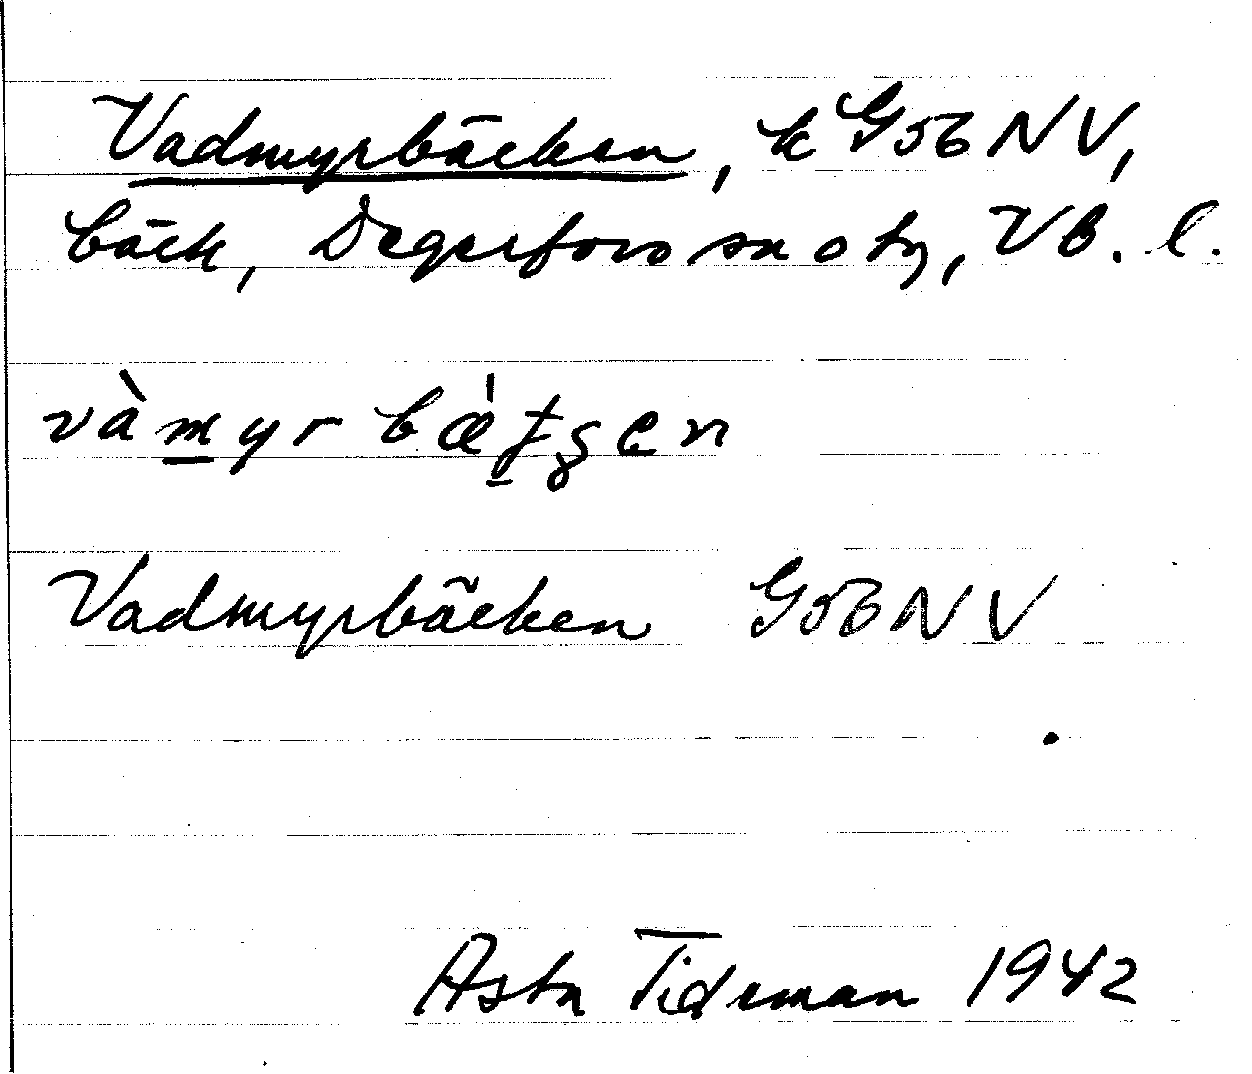 Vadmyrbäcken, k G56NV,
bäck, Degerfors sn o tg, Vb. l.
vàmyrbæ̀ţʒen
Vadmyrbäcken G56NV
Asta Tideman 1942